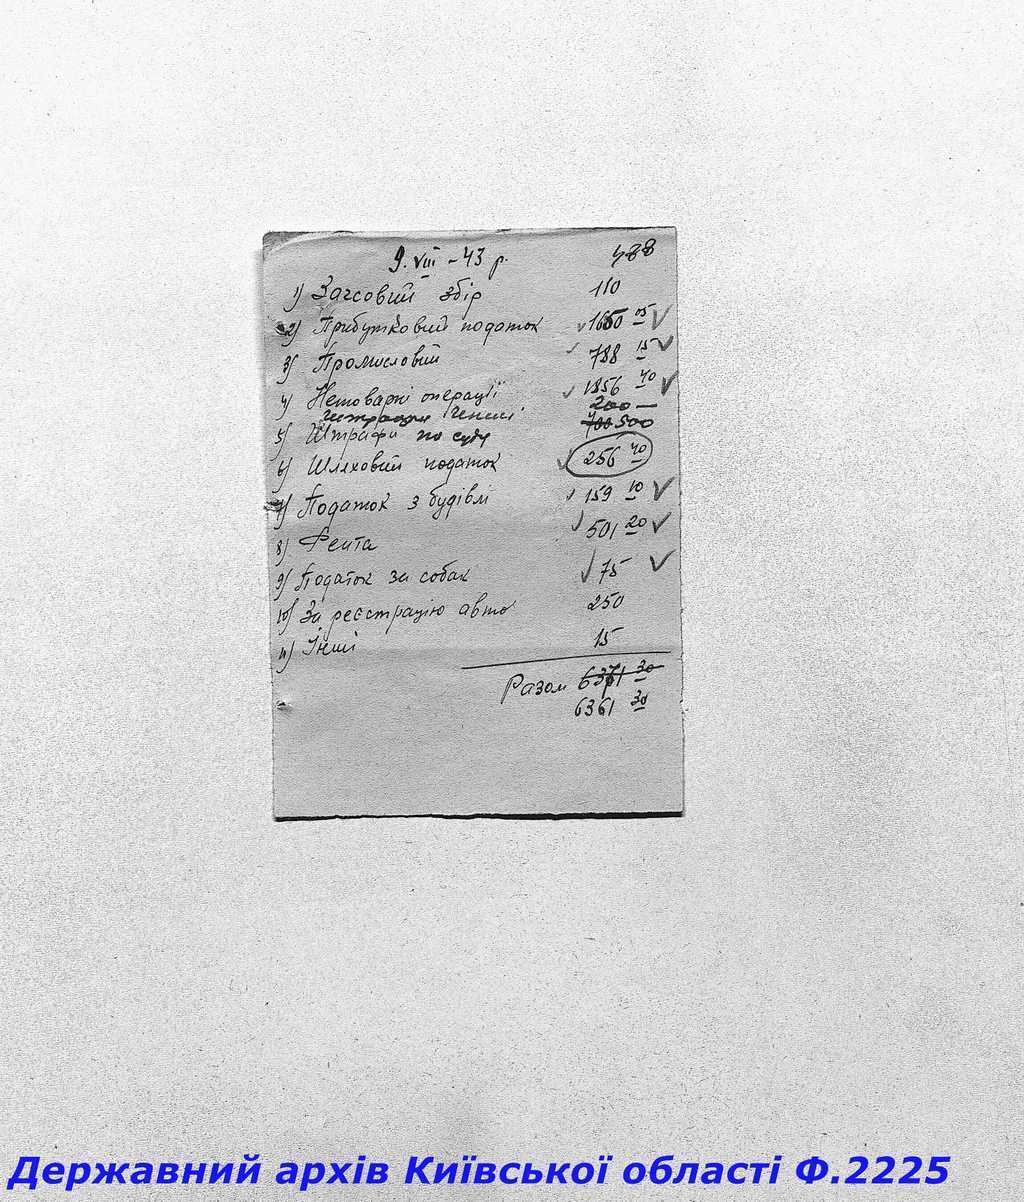 9. VIII – 43 р. 488
1) Загсовий збір 110
2) Прибутковий податок 1650 05
3) Промисловий 788 15
4) Нетоварні операції 1856 40
200 —
5) Штрафи по суду 700 500
6) Шляховий податок 256 40
7) Податок з будівлі 159 10
8) Рента 501 20
9) Податок за собак 75
10) За реєстрацію авто 250
11) Інші 15
Разом 6371 30
6361 30
Державний архів Київської області Ф.2225